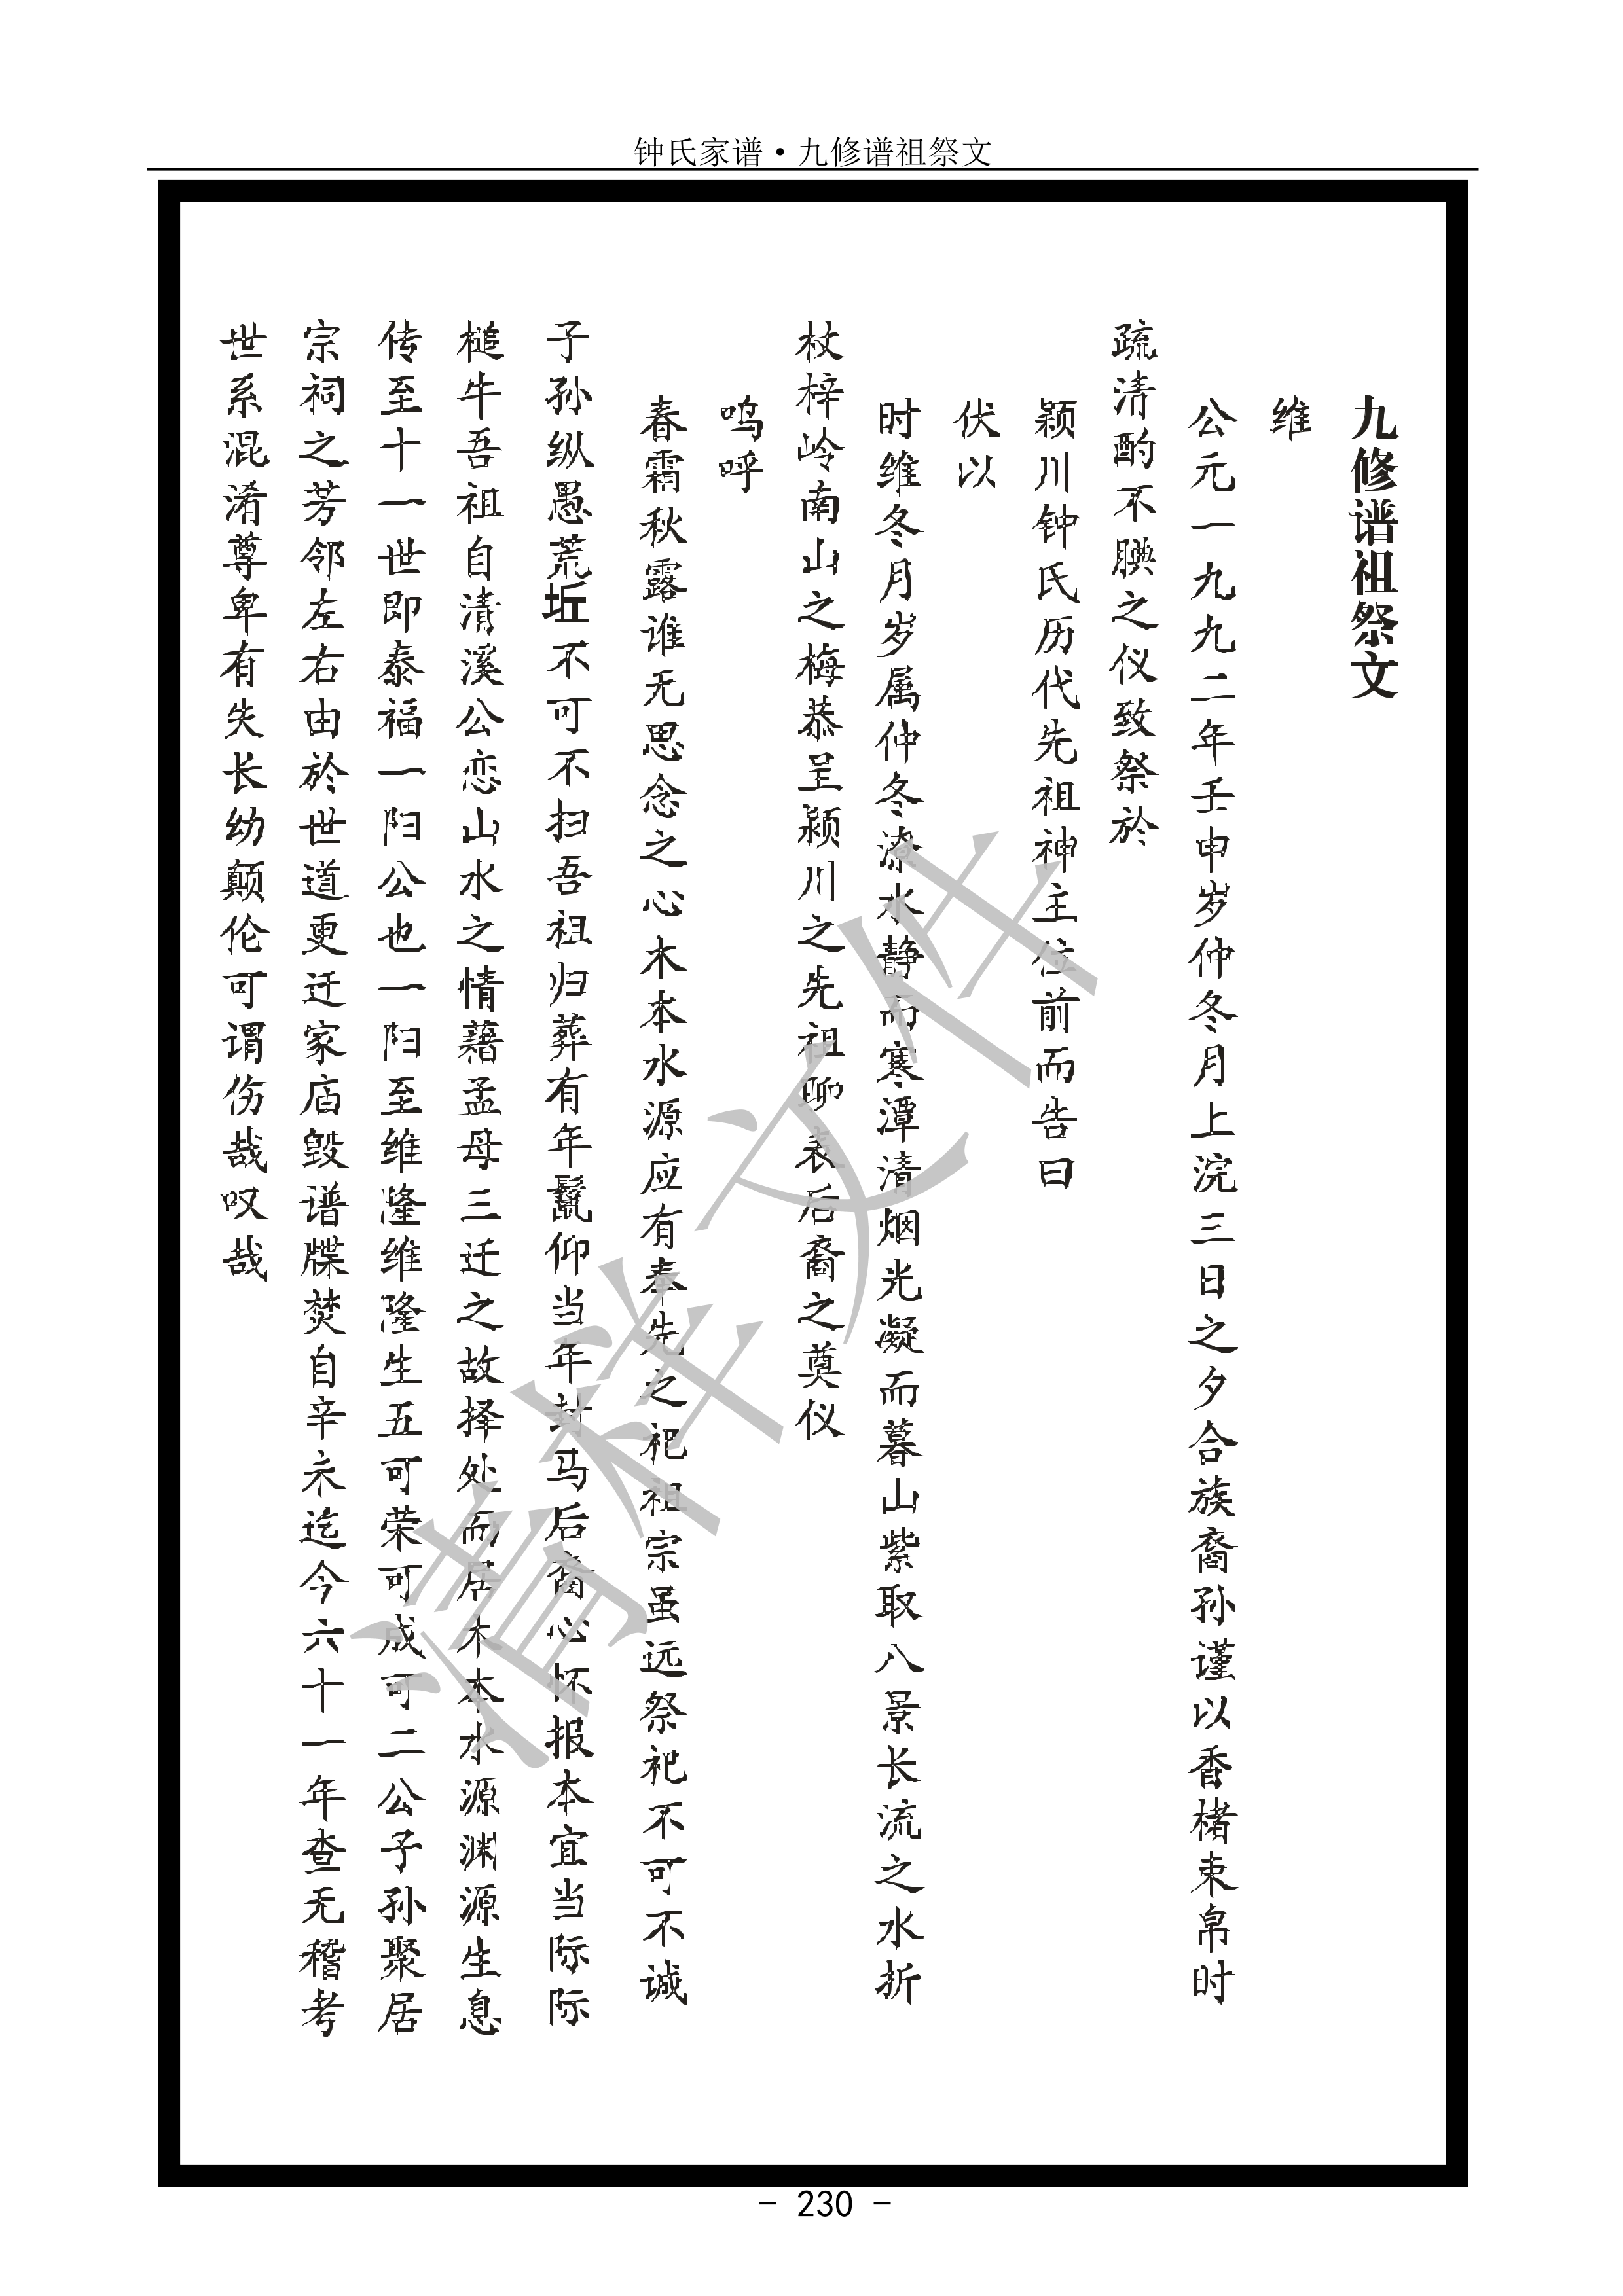 钟氏家谱·九修谱祖祭文
九修谱祖祭文
维
公元一九九二年壬申岁仲冬月上浣三日之夕合族裔孙谨以香楮束帛时
疏清酌不腆之仪致祭於
颖川钟氏历代先祖神主位前而告曰
伏以
时维冬月岁属仲冬潦水静而寒潭清烟光凝而暮山紫取八景长流之水折
杖梓岭南山之梅恭呈颍川之先祖聊表后裔之奠仪
呜呼
春霜秋露谁无思念之心木本水源应有奉先之祀祖宗虽远祭祀不可不诚
子孙纵愚荒坵不可不扫吾祖归葬有年鬣仰当年封马后裔心怀报本宜当际际
槌牛吾祖自清溪公恋山水之情藉孟母三迁之故择处而居木本水源渊源生息
传至十一世即泰福一阳公也一阳至维隆维隆生五可荣可成可二公子孙聚居
宗祠之芳邻左右由於世道更迁家庙毁谱牒焚自辛未迄今六十一年查无稽考
世系混淆尊卑有失长幼颠伦可谓伤哉叹哉
清样文件
- 230 -